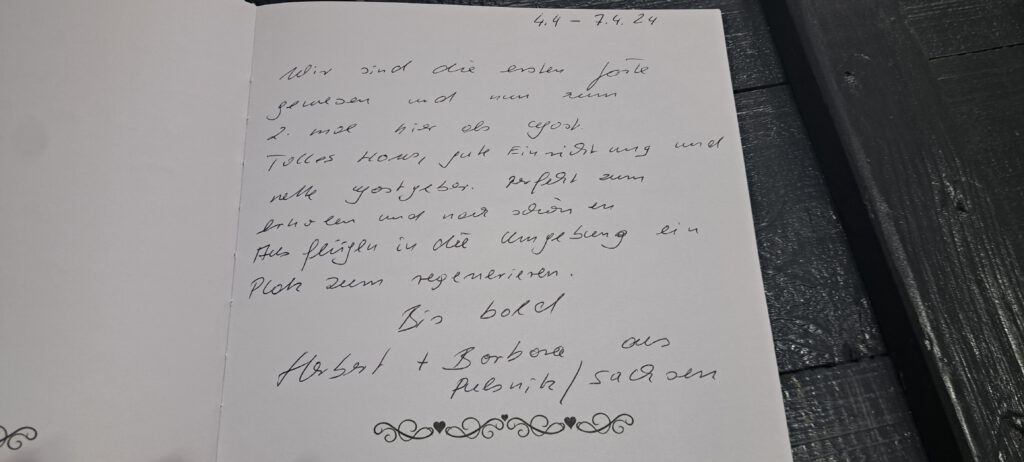 4.4 – 7.4.24
Wir sind die ersten Gäste
gewesen und nun zum
2. mal hier als Gast.
Tolles Haus, gute Einrichtung und
nette Gastgeber. Perfekt zum
erholen und nach schönen
Ausflügen in die Umgebung ein
Platz zum regenerieren.
Bis bald
Herbert + Barbara aus
Pulsnitz / Sachsen